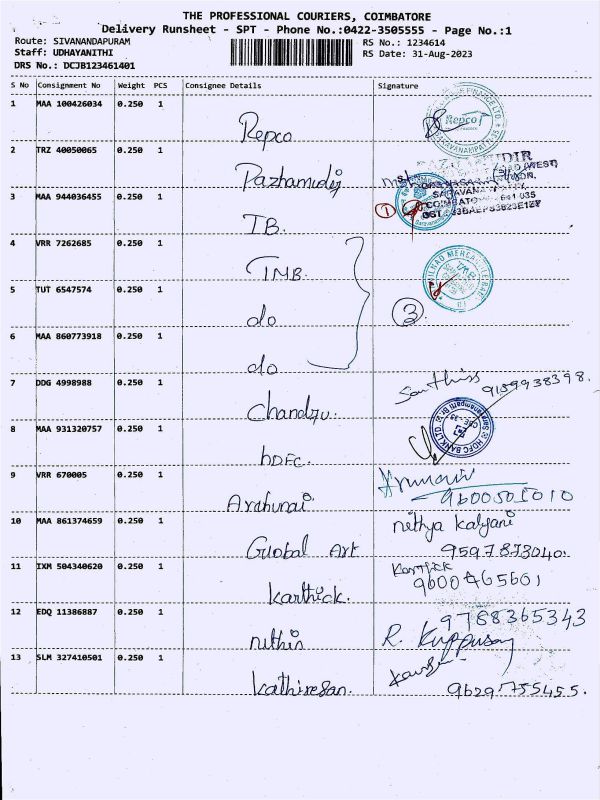 THE PROFESSIONAL COURIERS, COIMBATORE
Delivery Runsheet - SPT - Phone No.:0422-3505555 - Page No.:1
Route: SIVANANDAPURAM RS No.: 1234614
Staff: UDHAYANITHI RS Date: 31-Aug-2023
DRS No.: DCJB123461401
S No Consignment No Weight PCS Consignee Details Signature
1 MAA 100426034 0.250 1 Repco
Repco
2 TRZ 40050065 0.250 1 Pazhamudir
3 MAA 944036455 0.250 1 TB.
1
COIMBATORE - 641 035
4 VRR 7262685 0.250 1 TMB.
5 TUT 6547574 0.250 1 do
3
6 MAA 860773918 0.250 1 do
7 DDG 4998988 0.250 1 Chandru. 9159938398.
8 MAA 931320757 0.250 1 HDFC.
HDFC BANK LTD
9 VRR 670005 0.250 1 9600501010
10 MAA 861374659 0.250 1 Guobal Art nithya Kalyani
9597873040.
11 IXM 504340620 0.250 1 Karthick. Karthick
9600465601
12 EDQ 11386887 0.250 1 nithin 9788365343
R. Kuppusamy
13 SLM 327410501 0.250 1 Kathiresan. 9629755455.